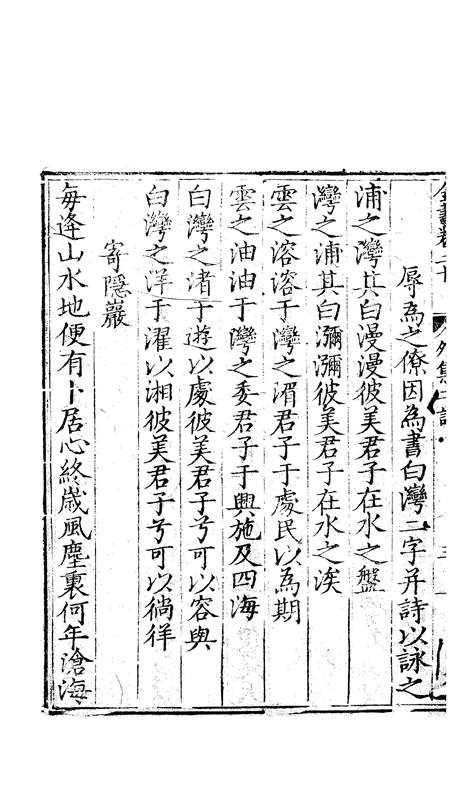 全書卷二十 外集二 詩
辱為之僚因為書白灣二字并詩以詠之
浦之灣其白漫漫彼美君子在水之盤
灣之浦其白瀰瀰彼美君子在水之涘
雲之溶溶于灣之湄君子于處民以為期
雲之油油于灣之委君子于興施及四海
白灣之渚于遊以處彼美君子兮可以容與
白灣之洋于濯以湘彼美君子兮可以徜徉
寄隱巖
每逢山水地便有卜居心終歲風塵裏何年滄海